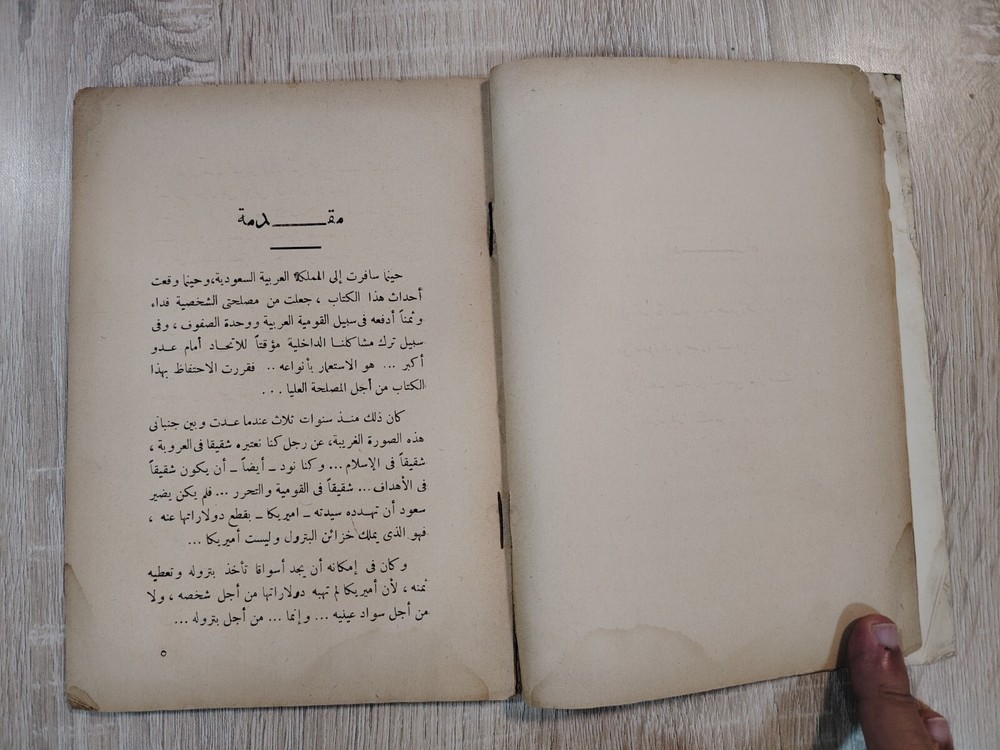 مقـــدمة
حينما سافرت إلى المملكة العربية السعودية، وحينما وقعت
أحداث هذا الكتاب ، جعلت من مصلحتى الشخصية فداء
وثمناً أدفعه فى سبيل القومية العربية ووحدة الصفوف ، وفى
سبيل ترك مشاكلنا الداخلية مؤقتاً للاتحاد أمام عدو
أكبر ... هو الاستعمار بأنواعه .. فقررت الاحتفاظ بهذا
الكتاب من أجل المصلحة العليا . . .
كان ذلك منذ سنوات ثلاث عندما عدت وبين جنباتى
هذه الصورة الغريبة، عن رجل كنا نعتبره شقيقا فى العروبة ،
شقيقاً فى الإسلام ... وكنا نود ــ أيضاً ــ أن يكون شقيقاً
فى الأهداف... شقيقاً فى القومية والتحرر ... فلم يكن يضير
سعود أن تهدده سيدته ــ امريكا ــ بقطع دولاراتها عنه ،
فهو الذى يملك خزائن البترول وليست أميريكا ...
وكان فى إمكانه أن يجد أسواقا تأخذ بتروله وتعطيه
ثمنه ، لأن أميريكا لم تهبه دولاراتها من أجل شخصه ، ولا
من أجل سواد عينيه ... وإنما ... من أجل بتروله ...
٥